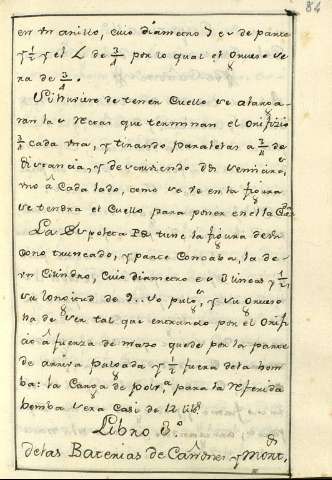 84
en vn anillo, cuio diametro J es de parte
y ½ y el L de ¾ por lo qual el Grueso se
ra de ¾.
Si huviere de tener Cuello se alarga
ran las rectas que terminan el Orifizio
¾ cada vna, y tirando paralelas a ¾ de
distancia, y descriviendo dos semicircu
los â Cada lado, como se ve en la figura
se tendra el Cuello para poner en el la
La Espoleta PQ tiene la figura de vn
cono truncado, y parte Concaba, la de
vn Cilindro, cuio diametro es 3 lineas y ½
su longitud de 9..8vo pulg.s, y su Grueso
ha de ser tal que entrando por el Orifi
cio â fuerza de mazo quede por la parte
de arriva pulgada y ½ fuera de la bom
ba: la Carga de polv.a para la referida
bomba sera Casi de 12 lib.s
Libro 8.º
de las Baterias de Cañones y Mort.